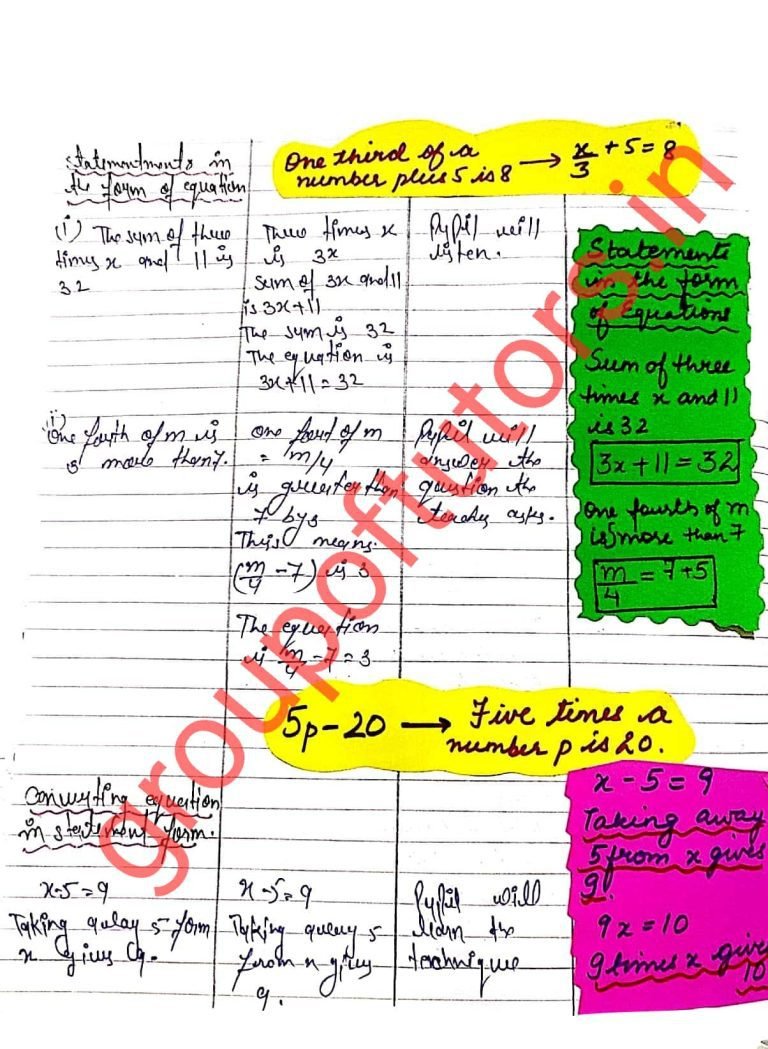 statementments in
the form of equation
One third of a
number plus 5 is 8 → x/3 + 5 = 8
(i) The sum of three
times x and 11 is
32
Three times x
is 3x
Sum of 3x and 11
is 3x+11
The sum is 32
The equation is
3x+11=32
Pupil will
listen.
Statements
in the form
of equations
Sum of three
times x and 11
is 32
3x+11=32
One fourth of m
is 5 more than 7
m/4 = 7+5
ii)
One fourth of m is
3 more than 7.
one fourt of m
= m/4
is greater than
7 by 3
This means.
(m/4 - 7) is 3
The equation
is m/4 - 7 = 3
Pupil will
answer the
question the
teacher asks.
5p-20 → Five times a
number p is 20.
Converting equation
in statement form.
x-5=9
Taking away 5 form
x gives 9.
x-5=9
Taking away 5
from x gives
9.
Pupil will
learn the
technique
x-5=9
Taking away
5 from x gives
9.
9x=10
9 times x give
10
groupoftutors.in